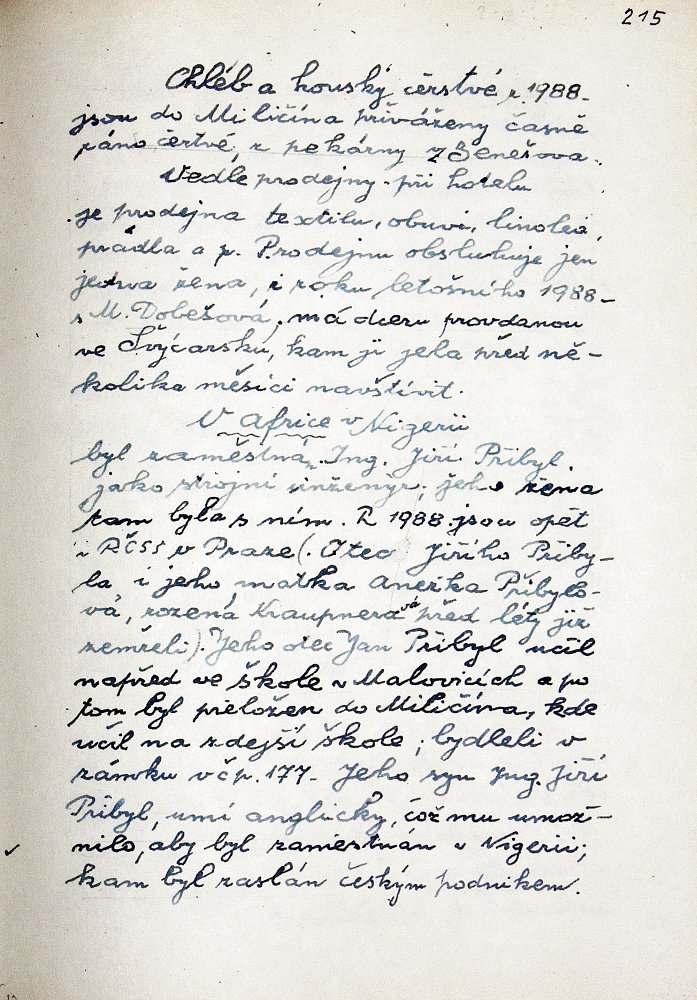 215
Chléb a housky čerstvé r. 1988-
jsou do Miličína přiváženy časně
ráno čertvé, z pekárny z Benešova.
Vedle prodejny při hotelu
je prodejna textilu, obuvi, linolea,
prádla a p. Prodejnu obsluhuje jen
jedna žena, i roku letošního 1988-
s M. Dobešová, má dceru provdanou
ve Švýcarsku, kam ji jela před ně-
kolika měsíci navštívit.
V africe v Nigerii
byl zaměstnán. Ing. Jiří Přibyl,
jako strojní inženýr; jeho žena
tam byla s ním. R 1988 jsou opět
i RČSS v Praze (. Otec Jiřího Přiby-
la i jeho matka Anežka Přibylo-
vá, rozená Kraupnerová před léty již
zemřeli). Jeho otec Jan Přibyl učil
napřed ve škole v Malovicích a po
tom byl přeložen do Miličína, kde
učil na zdejší škole; bydleli v
zámku v čp. 177- Jeho syn Ing. Jiří
Přibyl, umí anglicky, což mu umož-
nilo, aby byl zaměstnán v Nigerii;
kam byl zaslán českým podnikem.